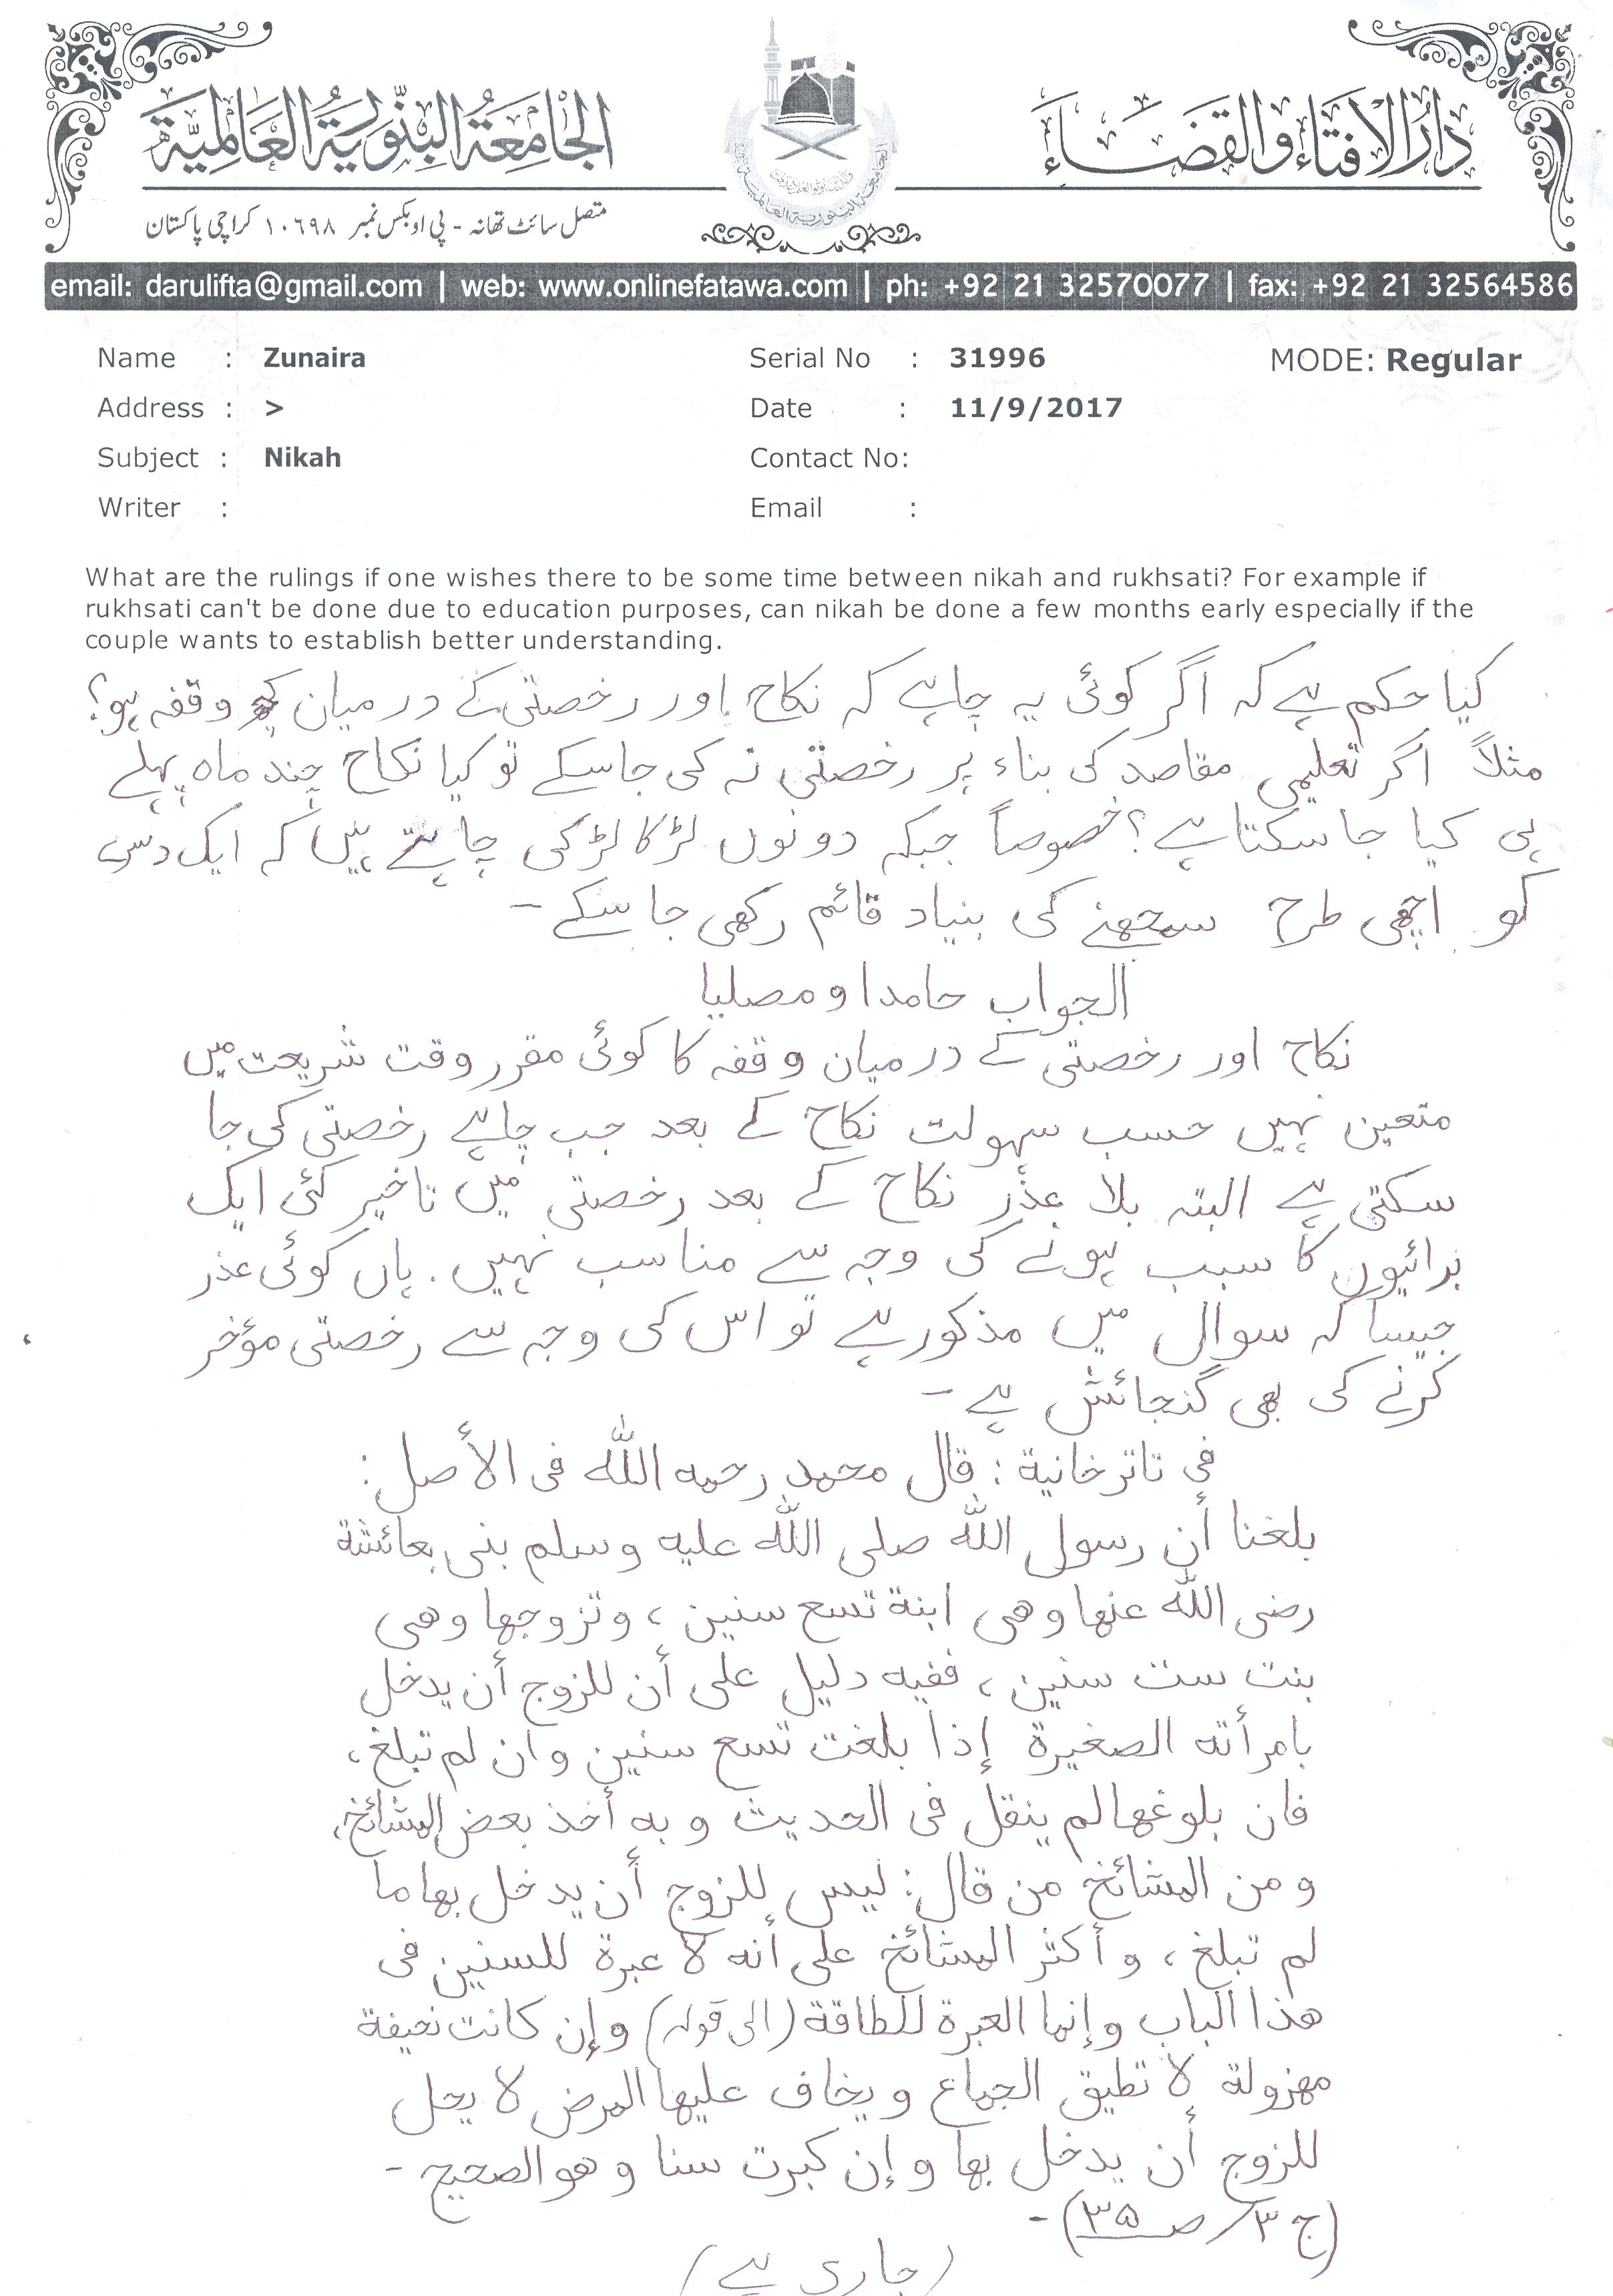 دارالافتاء والقضاء
الجامعة البنورية العالمية
متصل سائٹ تھانہ - پی او بکس نمبر ۱۰۶۹۸ کراچی پاکستان
email: darulifta@gmail.com | web: www.onlinefatawa.com | ph: +92 21 32570077 | fax: +92 21 32564586
Name : Zunaira Serial No : 31996 MODE: Regular
Address : > Date : 11/9/2017
Subject : Nikah Contact No:
Writer : Email :
What are the rulings if one wishes there to be some time between nikah and rukhsati? For example if
rukhsati can't be done due to education purposes, can nikah be done a few months early especially if the
couple wants to establish better understanding.
کیا حکم ہے کہ اگر کوئی یہ چاہے کہ نکاح اور رخصتی کے درمیان کچھ وقفہ ہو؟
مثلاً اگر تعلیمی مقاصد کی بناء پر رخصتی نہ کی جاسکے تو کیا نکاح چند ماہ پہلے
ہی کیا جا سکتا ہے؟ خصوصاً جبکہ دونوں لڑکا لڑکی چاہتے ہیں کہ ایک دس
کو اچھی طرح سمجھنے کی بنیاد قائم رکھی جا سکے -
الجواب حامدا و مصلیا
نکاح اور رخصتی کے درمیان وقفہ کا کوئی مقرر وقت شریعت میں
متعین نہیں حسب سہولت نکاح کے بعد جب چاہے رخصتی کی جا
سکتی ہے البتہ بلا عذر نکاح کے بعد رخصتی میں تاخیر کئی ایک
برائیوں کا سبب ہونے کی وجہ سے مناسب نہیں. ہاں کوئی عذر
جیسا کہ سوال میں مذکور ہے تو اس کی وجہ سے رخصتی مؤخر
کرنے کی بھی گنجائش ہے -
في تاترخانية : قال محمد رحمه الله فى الأصل :
بلغنا أن رسول الله صلى الله عليه وسلم بنى بعائشة
رضى الله عنها وهى ابنة تسع سنين ، وتزوجها وهى
بنت ست سنين ، ففيه دليل على أن للزوج أن يدخل
بامرأته الصغيرة إذا بلغت تسع سنين وان لم تبلغ ،
فان بلوغها لم ينقل فى الحديث وبه أخذ بعض المشائخ ،
ومن المشائخ من قال : ليس للزوج أن يدخل بها ما
لم تبلغ ، وأكثر المشائخ على أنه لا عبرة للسنين فى
هذا الباب وإنما العبرة للطاقة (الى قوله) وإن كانت نحيفة
مهزولة لا تطيق الجماع ويخاف عليها المرض لا يحل
للزوج أن يدخل بها وإن كبرت سنا وهو الصحيح -
(ج ۳/ص ۳۵) -
(جاری ہے)